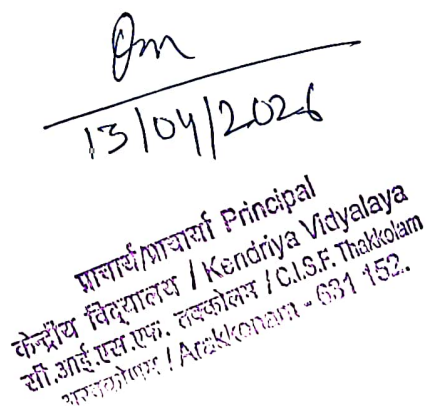 13/04/2026
प्राचार्य/प्राचार्या Principal
केन्द्रीय विद्यालय / Kendriya Vidyalaya
सी.आई.एस.एफ. तक्कोलम / C.I.S.F. Thakkolam
अरक्कोणम / Arakkonam - 631 152.